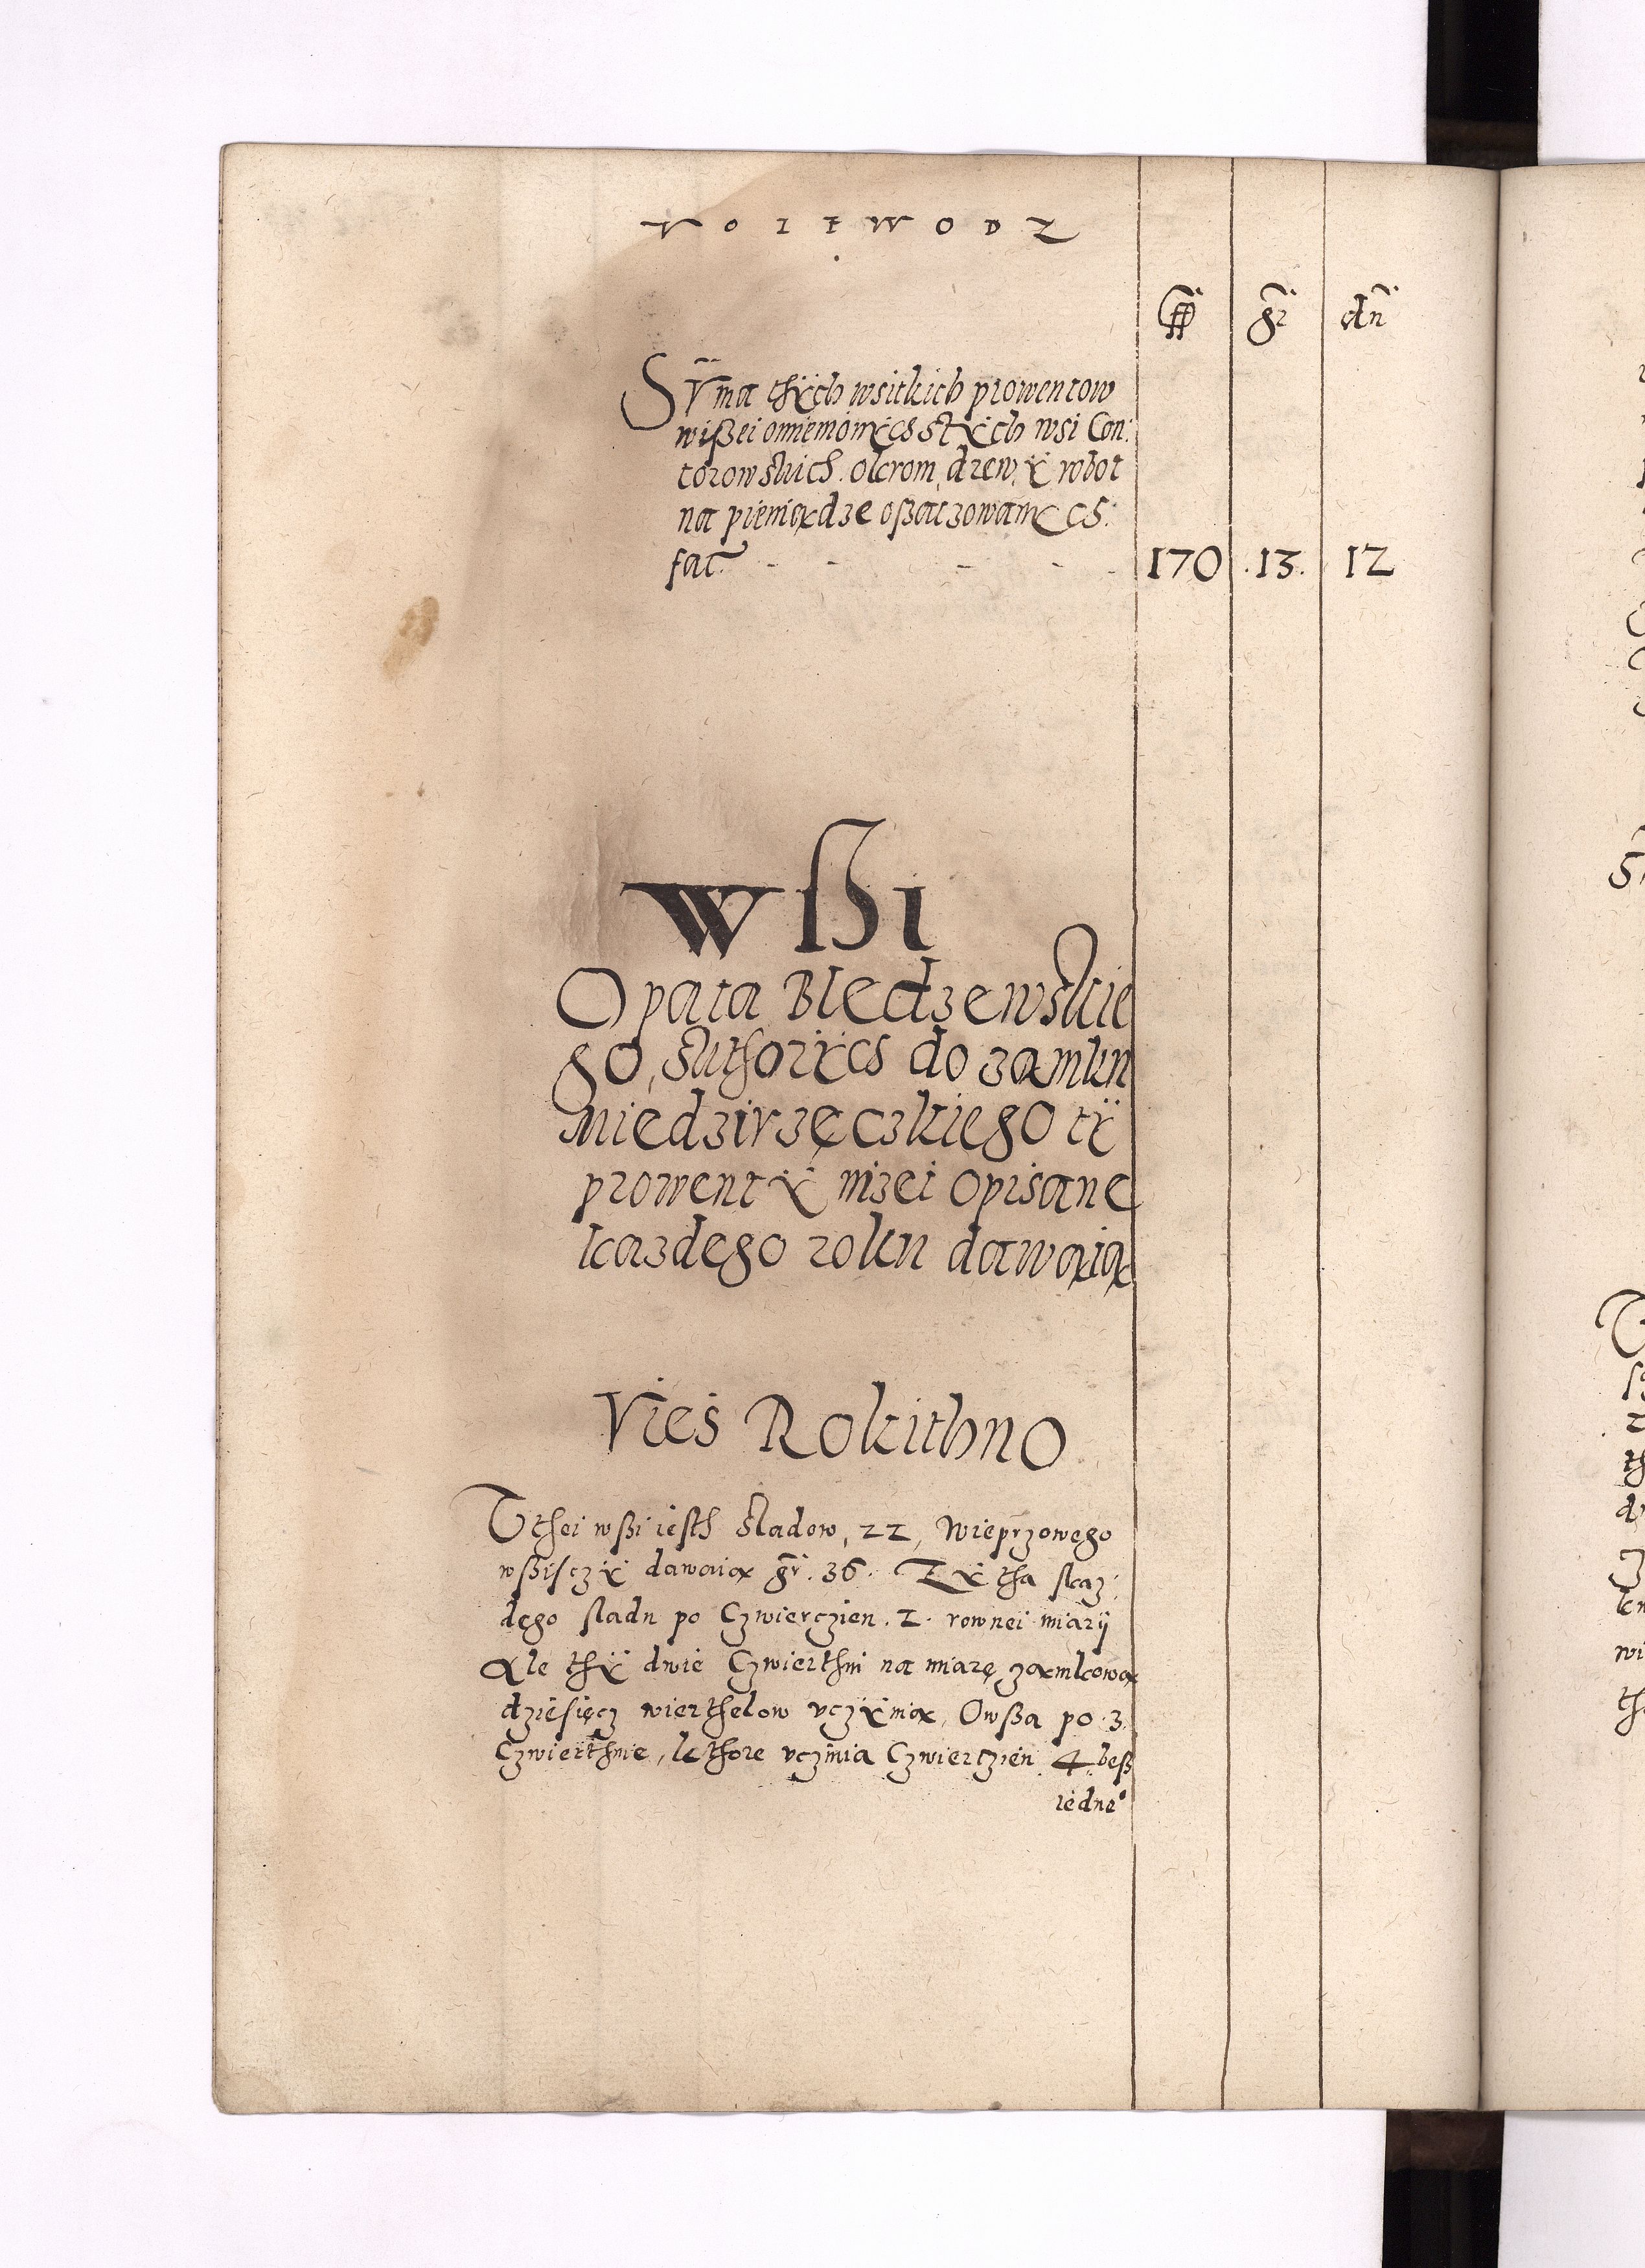 VOIEWODZ
ff gr dn
Suma thÿch wsitkich prowentow
wißei omienionÿch s tÿch wsi Con:
torowskich. okrom drew, ÿ robot
na pieniądze oßaczowanÿch:
fac. - - - - 170 .13. 12
wßi
Opata Bledzewskie
go, kthorÿch do zamku
Miedzirzęczkiego tÿ
prowentÿ nizei opisane
kazdego roku dawaią
Vies Rokithno
W thei wßi iesth sladow, 22, Wieprzowego
wßisczÿ dawaią gr. 36. Zÿtha s kaz:
dego sladu po Czwierczien. 2. rownei miarÿ
Ale thÿ dwie Czwierthni na miarę zamkową
dziesięcz wierthelow vczÿnią, Owßa po 3.
Czwierthnie, kthore vczinia Czwierczien 4 beß
iedne°